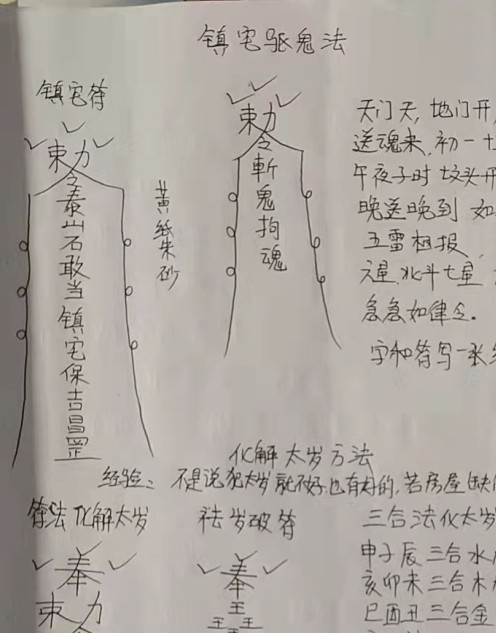 镇宅驱鬼法
镇宅符
敕令泰山石敢当镇宅保吉昌罡
黄纸朱砂
敕令斩鬼拘魂
天门天,地门开,
送魂来,初一十
午夜子时坟头开
晚送晚到 如
五雷相报,
元星,北斗七星
急急如律令。
字和符写一张纸
化解太岁方法
经验: 不是说犯太岁就不好也有好的,若房屋缺
符法化解太岁
奉
敕
祛岁破符
奉
王
王王
三合法化太岁
申子辰三合水
亥卯未三合木
巳酉丑三合金